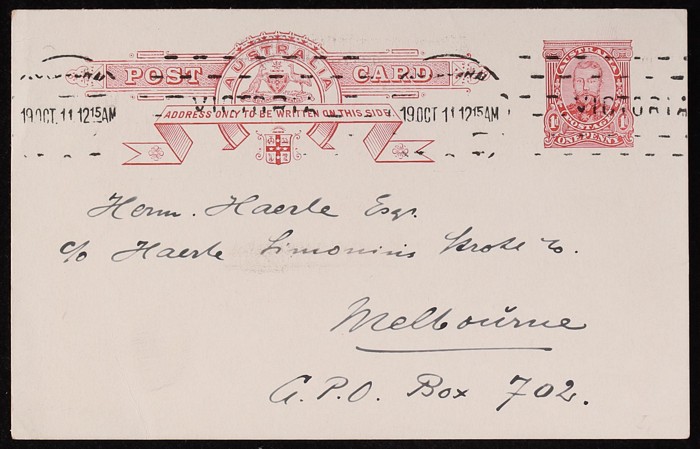 AUSTRALIA
POST CARD
ADDRESS ONLY TO BE WRITTEN ON THIS SIDE
19 OCT. 11 12 15 AM
VICTORIA
19 OCT. 11 12 15 AM
VICTORIA
AUSTRALIA
POSTAGE
1d 1d
ONE PENNY
Herrn. Haerle Esqr.
c/o Haerle Limonius Strohe &
Melboŭrne
G.P.O. Box 702.